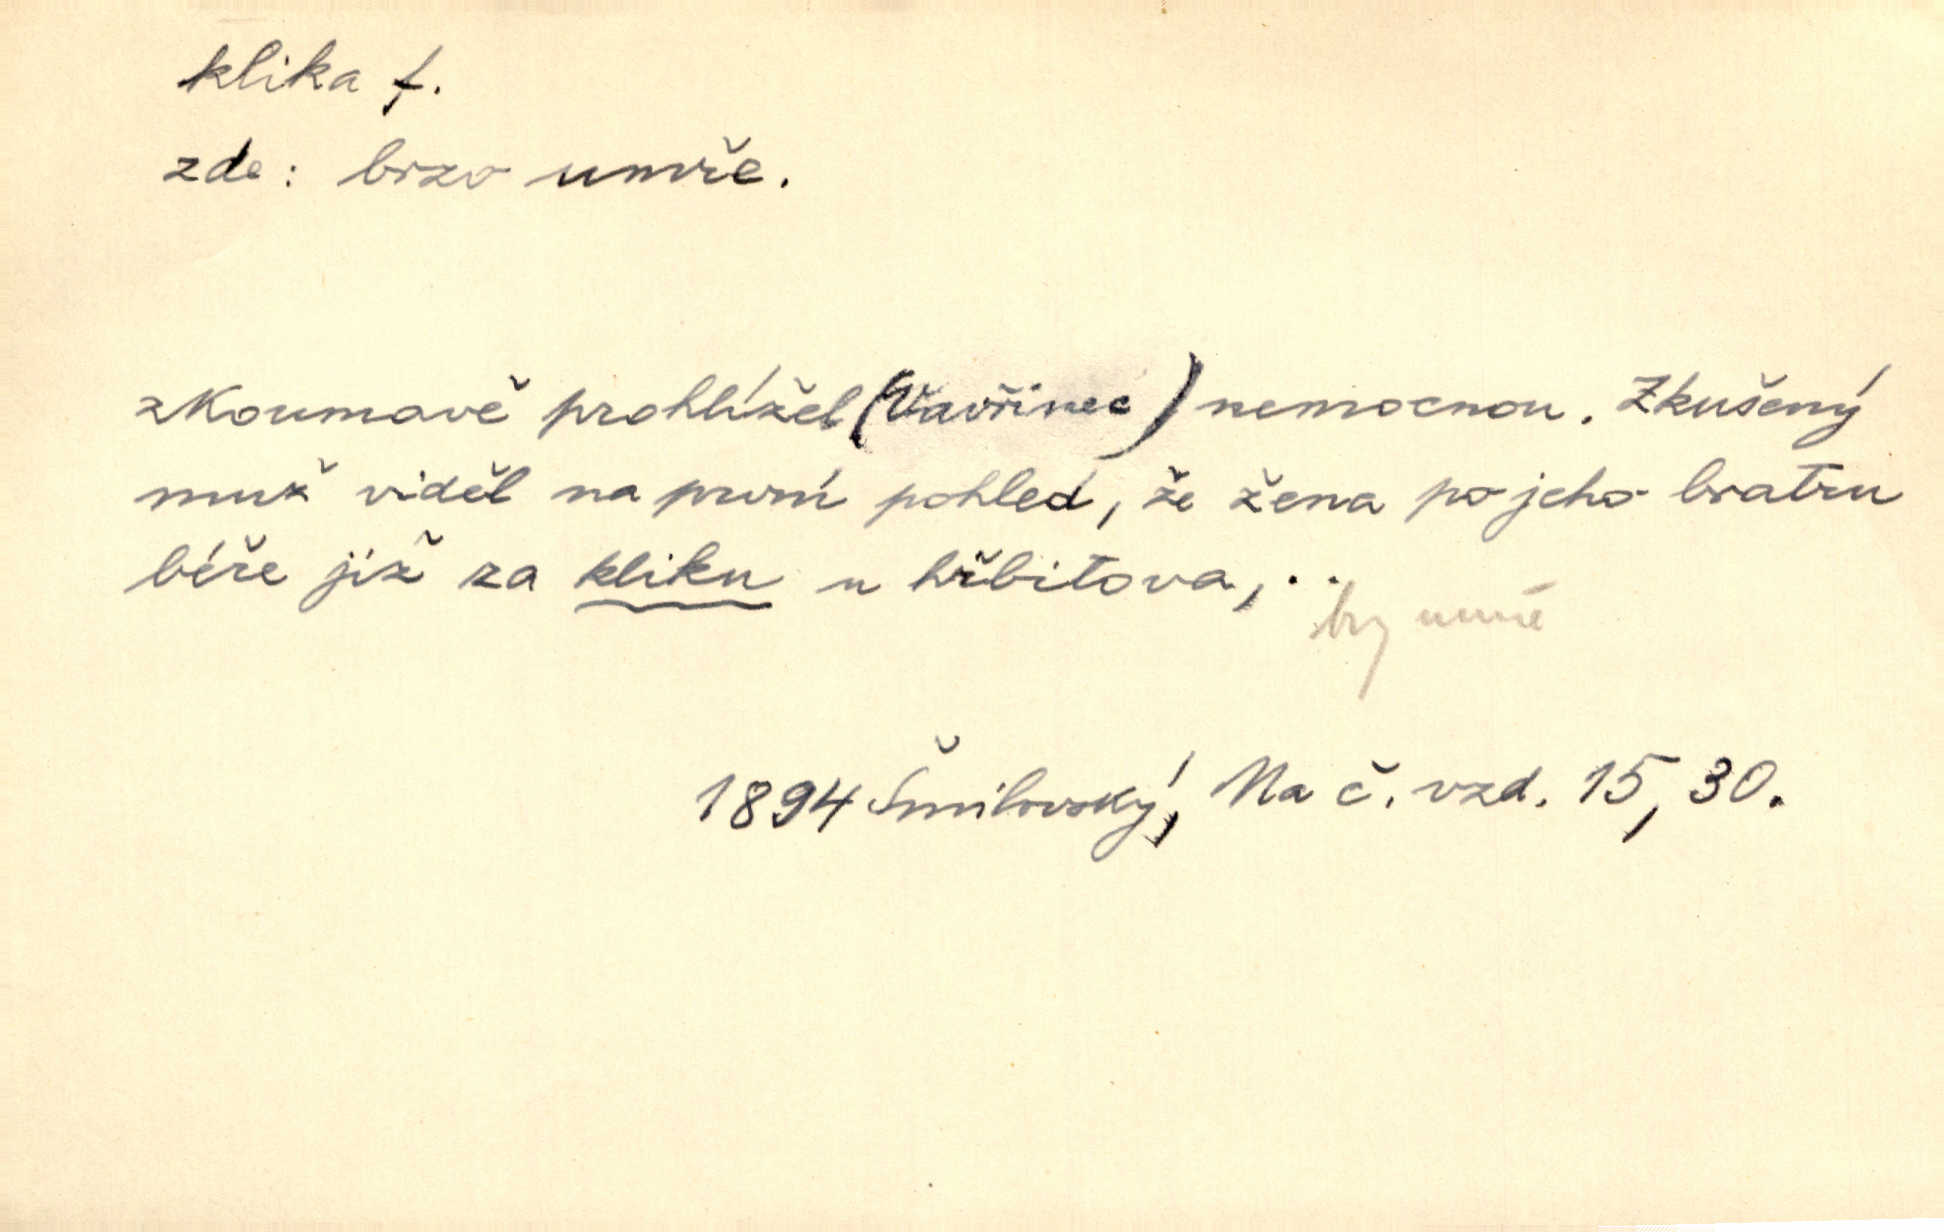 klika f.
zde: brzo umře.
zkoumavě prohlížel (Vavřinec) nemocnou. Zkušený
muž viděl na první pohled, že žena po jeho bratru
béře již za kliku u hřbitova, . .
1894 Šmilovský, Na č. vzd. 15, 30.